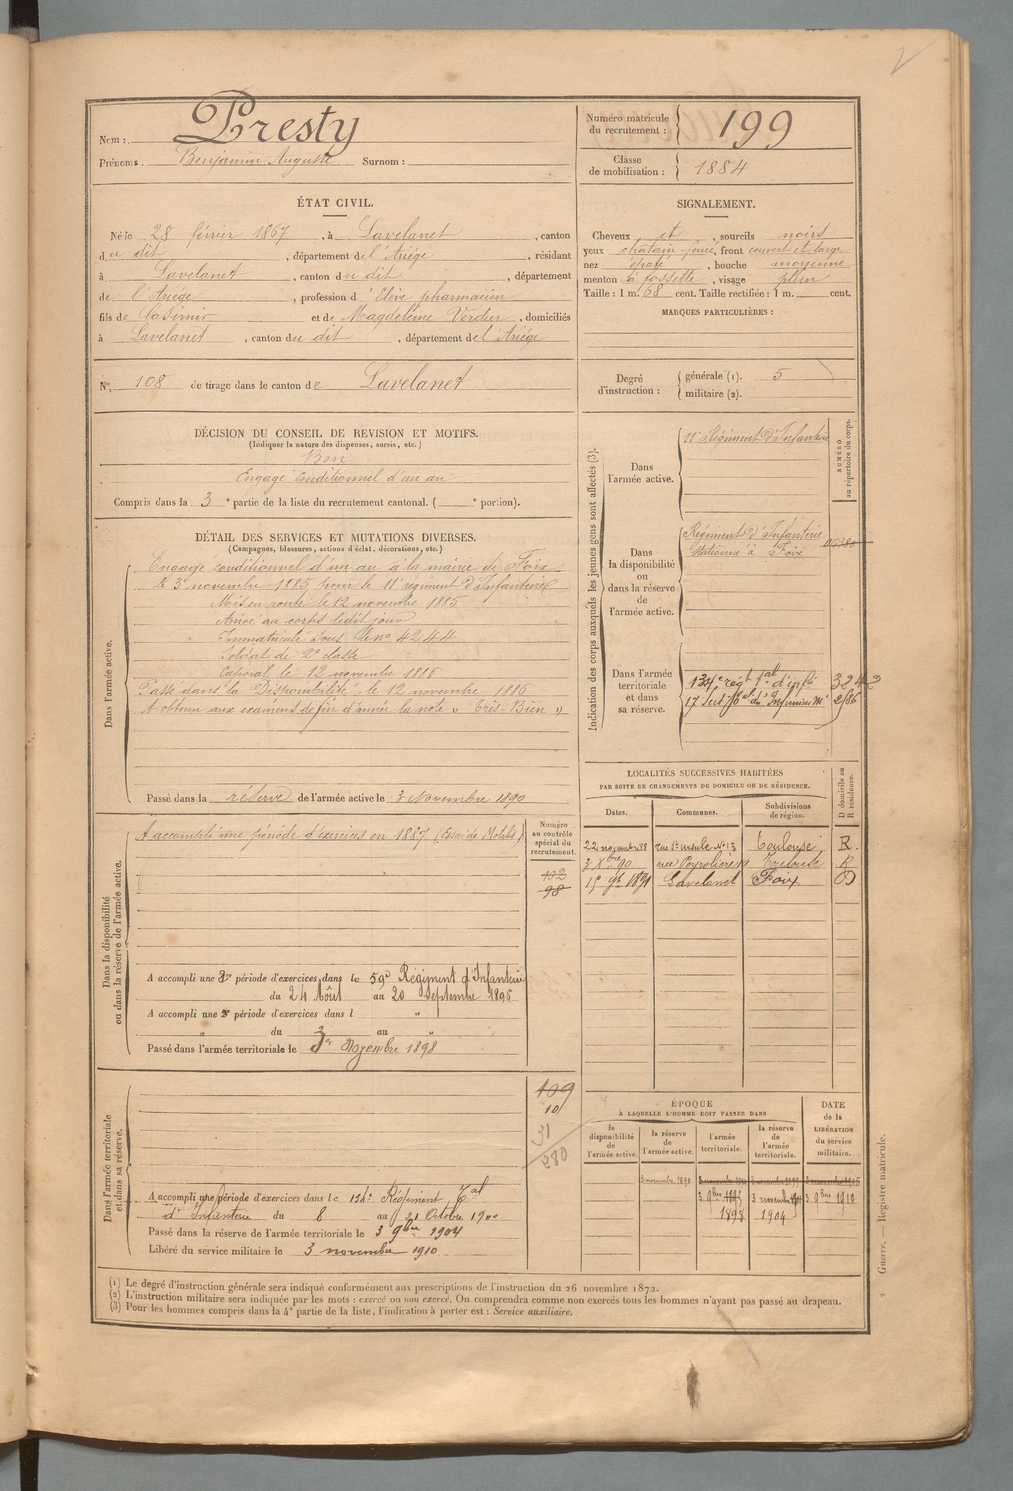 Nom : Presty
Prénoms. Benjamin Auguste Surnom :
Numéro matricule du recrutement : 199
Classe de mobilisation : 1884
ÉTAT CIVIL.
Né le 28 février 1867, à Lavelanet, canton
du dit, département de l'Ariége, résidant
à Lavelanet, canton du dit, département
de l'Ariége, profession d'Elève pharmacien
fils de Casimir et de Magdeleine Verdier, domiciliés
à Lavelanet, canton du dit, département de l'Ariége
SIGNALEMENT.
Cheveux et, sourcils noirs
yeux chatain-foncé, front couvert et large
nez épaté, bouche moyenne
menton à fossette, visage plein
Taille : 1 m. 68 cent. Taille rectifiée : 1 m. cent.
MARQUES PARTICULIÈRES :
N° 108 de tirage dans le canton de Lavelanet
Degré d'instruction : générale (1). 5
militaire (2).
DÉCISION DU CONSEIL DE REVISION ET MOTIFS.
(Indiquer la nature des dispenses, sursis, etc.)
Bon
Engagé Conditionnel d'un an
Compris dans la 3e partie de la liste du recrutement cantonal. ( e portion).
DÉTAIL DES SERVICES ET MUTATIONS DIVERSES.
(Campagnes, blessures, actions d'éclat, décorations, etc.)
Dans l'armée active.
Engagé conditionnel d'un an à la mairie de Foix
le 3 novembre 1885 pour le 11e régiment d'Infanterie
Mis en route le 12 novembre 1885
Arrivé au corps ledit jour
Immatriculé sous le no 4244
Soldat de 2e classe
Caporal le 12 novembre 1886
Passé dans la Disponibilité le 12 novembre 1886
A obtenu aux examens de fin d'année la note « Très-Bien »
Passé dans la réserve de l'armée active le 3 Novembre 1890
Indication des corps auxquels les jeunes gens sont affectés (3).
NUMÉRO au répertoire du corps.
Dans l'armée active.
11e Régiment d'Infanterie
Dans la disponibilité ou dans la réserve de l'armée active.
Régiment d'Infanterie
Stationné à Foix
Dans l'armée territoriale et dans sa réserve.
134e régt tal d'infie 3242
17 Sect d'Infirmiers Mre 2/86
LOCALITÉS SUCCESSIVES HABITÉES
PAR SUITE DE CHANGEMENTS DE DOMICILE OU DE RÉSIDENCE.
D domicile ou R résidence.
Dates. Communes. Subdivisions de région.
22 novembre 88 rue Ste Ursule No 13 Toulouse R.
3 Xbre 90 rue Peyrolière Toulouse R
15 1891 Lavelanet Foix D
Dans la disponibilité ou dans la réserve de l'armée active.
A accompli une période d'exercices en 1887 (Essai de Mobilis.)
Numéro au contrôle spécial du recrutement.
102
98
A accompli une 2e période d'exercices dans le 59e Régiment d'Infanterie
du 24 Août au 20 Septembre 1896
A accompli une 2e période d'exercices dans l "
" du " au "
Passé dans l'armée territoriale le 3 Novembre 1898
Dans l'armée territoriale et dans sa réserve.
109
10
31
280
A accompli une période d'exercices dans le 134e Régiment Tal
d'Infanterie du 8 au 21 Octobre 1900
Passé dans la réserve de l'armée territoriale le 3 9bre 1904
Libéré du service militaire le 3 novembre 1910
ÉPOQUE
À LAQUELLE L'HOMME DOIT PASSER DANS
la disponibilité de l'armée active.
la réserve de l'armée active.
l'armée territoriale.
la réserve de l'armée territoriale.
DATE de la LIBÉRATION du service militaire.
3 novembre 1890
3 9bre 1898
3 novembre 1904
3 9bre 1910
(1) Le degré d'instruction générale sera indiqué conformément aux prescriptions de l'instruction du 26 novembre 1872.
(2) L'instruction militaire sera indiquée par les mots : exercé ou non exercé. On comprendra comme non exercés tous les hommes n'ayant pas passé au drapeau.
(3) Pour les hommes compris dans la 4e partie de la liste, l'indication à porter est : Service auxiliaire.
Guerre. — Registre matricule.